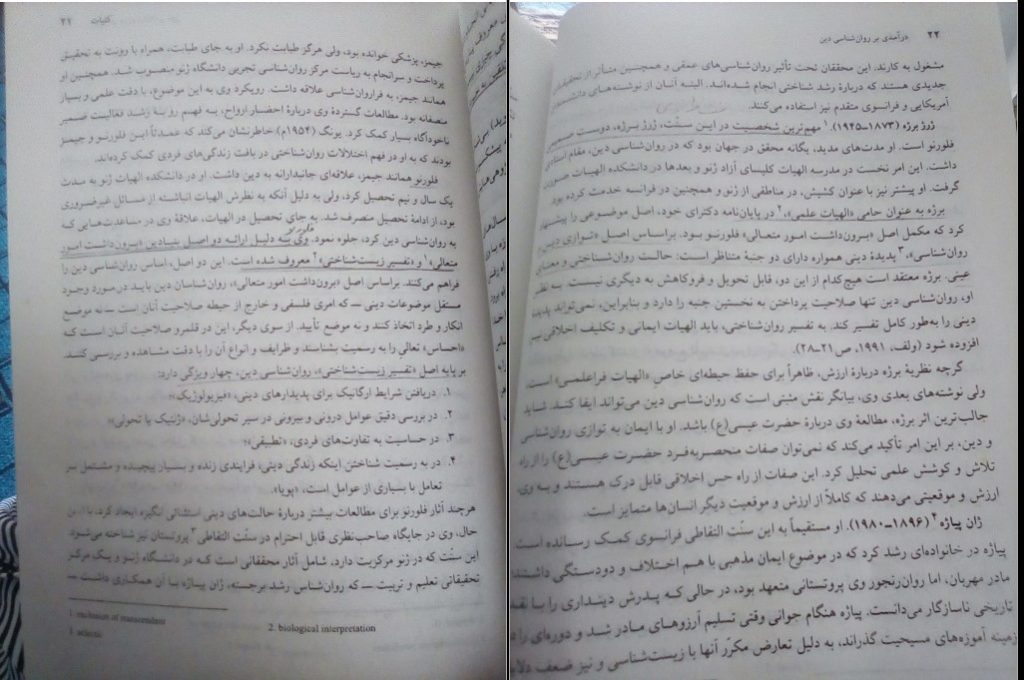 کلیات ۲۱
جیمز، پزشکی خوانده بود، ولی هرگز طبابت نکرد. او به جای طبابت، همراه با وونت به تحقیق
پرداخت و سرانجام به ریاست مرکز روان‌شناسی تجربی دانشگاه ژنو منصوب شد. همچنین او
همانند جیمز، به فراروان‌شناسی علاقه داشت. رویکرد وی به این موضوع، با دقت علمی و بسیار
منصفانه بود. مطالعات گستردهٔ وی دربارهٔ احضار ارواح، به فهم رو به رشد فعالیت ضمیر
ناخودآگاه بسیار کمک کرد. یونگ (۱۹۵۴م) خاطرنشان می‌کند که عمدتاً این فلورنو و جیمز
بودند که به او در فهم اختلالات روان‌شناختی در بافت زندگی‌های فردی کمک کرده‌اند.
فلورنو همانند جیمز، علاقه‌ای جانبدارانه به دین داشت. او در دانشکده الهیات ژنو به مدت
یک سال و نیم تحصیل کرد، ولی به دلیل آنکه به نظرش الهیات انباشته از مسائل غیرضروری
بود، از ادامهٔ تحصیل منصرف شد. به جای تحصیل در الهیات، علاقهٔ وی در مساعدت‌هایی که
به روان‌شناسی دین کرد، جلوه نمود. وی به دلیل ارائه دو اصل بنیادین «برون‌داشت امور
فلورنو
متعالی»۱ و «تفسیر زیست‌شناختی»۲ معروف شده است. این دو اصل، اساس روان‌شناسی دین را
فراهم می‌کنند. براساس اصل «برون‌داشت امور متعالی»، روان‌شناسان دین باید در مورد وجود
مستقل موضوعات دینی ــ که امری فلسفی و خارج از حیطه صلاحیت آنان است ــ نه موضع
انکار و طرد اتخاذ کنند و نه موضع تأیید. از سوی دیگر، این در قلمرو صلاحیت آنان است که
«احساس» تعالی را به رسمیت بشناسند و ظرایف و انواع آن را با دقت مشاهده و بررسی کنند.
بر پایه اصل «تفسیر زیست‌شناختی»، روان‌شناسی دین، چهار ویژگی دارد:
۱. دریافتن شرایط ارگانیک برای پدیدارهای دینی، «فیزیولوژیک»؛
۲. در بررسی دقیق عوامل درونی و بیرونی در سیر تحولی‌شان، «ژنتیک یا تحولی»؛
۳. در حساسیت به تفاوت‌های فردی، «تطبیقی»؛
۴. در به رسمیت شناختن اینکه زندگی دینی، فرایندی زنده و بسیار پیچیده و مشتمل بر
تعامل با بسیاری از عوامل است، «پویا».
هرچند آثار فلورنو برای مطالعات بیشتر دربارهٔ حالت‌های دینی استثنائی انگیزه ایجاد کرد، با این
حال، وی در جایگاه صاحب‌نظری قابل احترام در سنّت التقاطی۳ پروتستان نیز شناخته می‌شود.
این سنّت که در ژنو مرکزیت دارد، شامل آثار محققانی است که در دانشگاه ژنو و یک مرکز
تحقیقاتی تعلیم و تربیت ــ که روان‌شناس رشد برجسته، ژان پیاژه با آن همکاری داشت ــ
1. exclusion of transcendent
2. biological interpretation
3. eclectic
۲۲ درآمدی بر روان‌شناسی دین
مشغول به کارند. این محققان تحت تأثیر روان‌شناسی‌های عمقی و همچنین متأثر از تحقیقات
جدیدی هستند که دربارهٔ رشد شناختی انجام شده‌اند. البته آنان از نوشته‌های دانشمندان
آمریکایی و فرانسوی متقدم نیز استفاده می‌کنند.
ژرژ برژه (۱۸۷۳ــ۱۹۴۵).۱ مهم‌ترین شخصیت در این سنّت، ژرژ برژه، دوست صمیمی
فلورنو است. او مدت‌های مدید، یگانه محقق در جهان بود که در روان‌شناسی دین، مقام استادی
داشت. این امر نخست در مدرسه الهیات کلیسای آزاد ژنو و بعدها در دانشکده الهیات صورت
گرفت. او پیشتر نیز با عنوان کشیش، در مناطقی از ژنو و همچنین در فرانسه خدمت کرده بود.
برژه به عنوان حامی «الهیات علمی»،۲ در پایان‌نامه دکترای خود، اصل موضوعی را پیشنهاد
کرد که مکمل اصل «برون‌داشت امور متعالی» فلورنو بود. براساس اصل «توازی دین و
روان‌شناسی»،۳ پدیدهٔ دینی همواره دارای دو جنبهٔ متناظر است: حالت روان‌شناختی و معنای
عینی. برژه معتقد است هیچ‌کدام از این دو، قابل تحویل و فروکاهش به دیگری نیست. به نظر
او، روان‌شناسی دین تنها صلاحیت پرداختن به نخستین جنبه را دارد و بنابراین، نمی‌تواند پدیدهٔ
دینی را به‌طور کامل تفسیر کند. به تفسیر روان‌شناختی، باید الهیات ایمانی و تکلیف اخلاقی نیز
افزوده شود (ولف، ۱۹۹۱، ص۲۱ــ۲۸).
گرچه نظریهٔ برژه دربارهٔ ارزش، ظاهراً برای حفظ حیطه‌ای خاصِ «الهیات فراعلمی» است،
ولی نوشته‌های بعدی وی، بیانگر نقش مثبتی است که روان‌شناسی دین می‌تواند ایفا کند. شاید
جالب‌ترین اثر برژه، مطالعهٔ وی دربارهٔ حضرت عیسی(ع) باشد. او با ایمان به توازی روان‌شناسی
و دین، بر این امر تأکید می‌کند که نمی‌توان صفات منحصربه‌فرد حضرت عیسی(ع) را از راه
تلاش و کوشش علمی تحلیل کرد. این صفات از راه حس اخلاقی قابل درک هستند و به وی،
ارزش و موقعیتی می‌دهند که کاملاً از ارزش و موقعیت دیگر انسان‌ها متمایز است.
ژان پیاژه۴ (۱۸۹۶ــ۱۹۸۰). او مستقیماً به این سنّت التقاطی فرانسوی کمک رسانده است.
پیاژه در خانواده‌ای رشد کرد که در موضوع ایمان مذهبی با هم اختلاف و دودستگی داشتند.
مادر مهربان، اما روان‌رنجور وی پروتستانی متعهد بود، در حالی که پدرش دینداری را با نقد
تاریخی ناسازگار می‌دانست. پیاژه هنگام جوانی وقتی تسلیم آرزوهای مادر شد و دوره‌ای را در
زمینه آموزه‌های مسیحیت گذراند، به دلیل تعارض مکرّر آنها با زیست‌شناسی و نیز ضعف